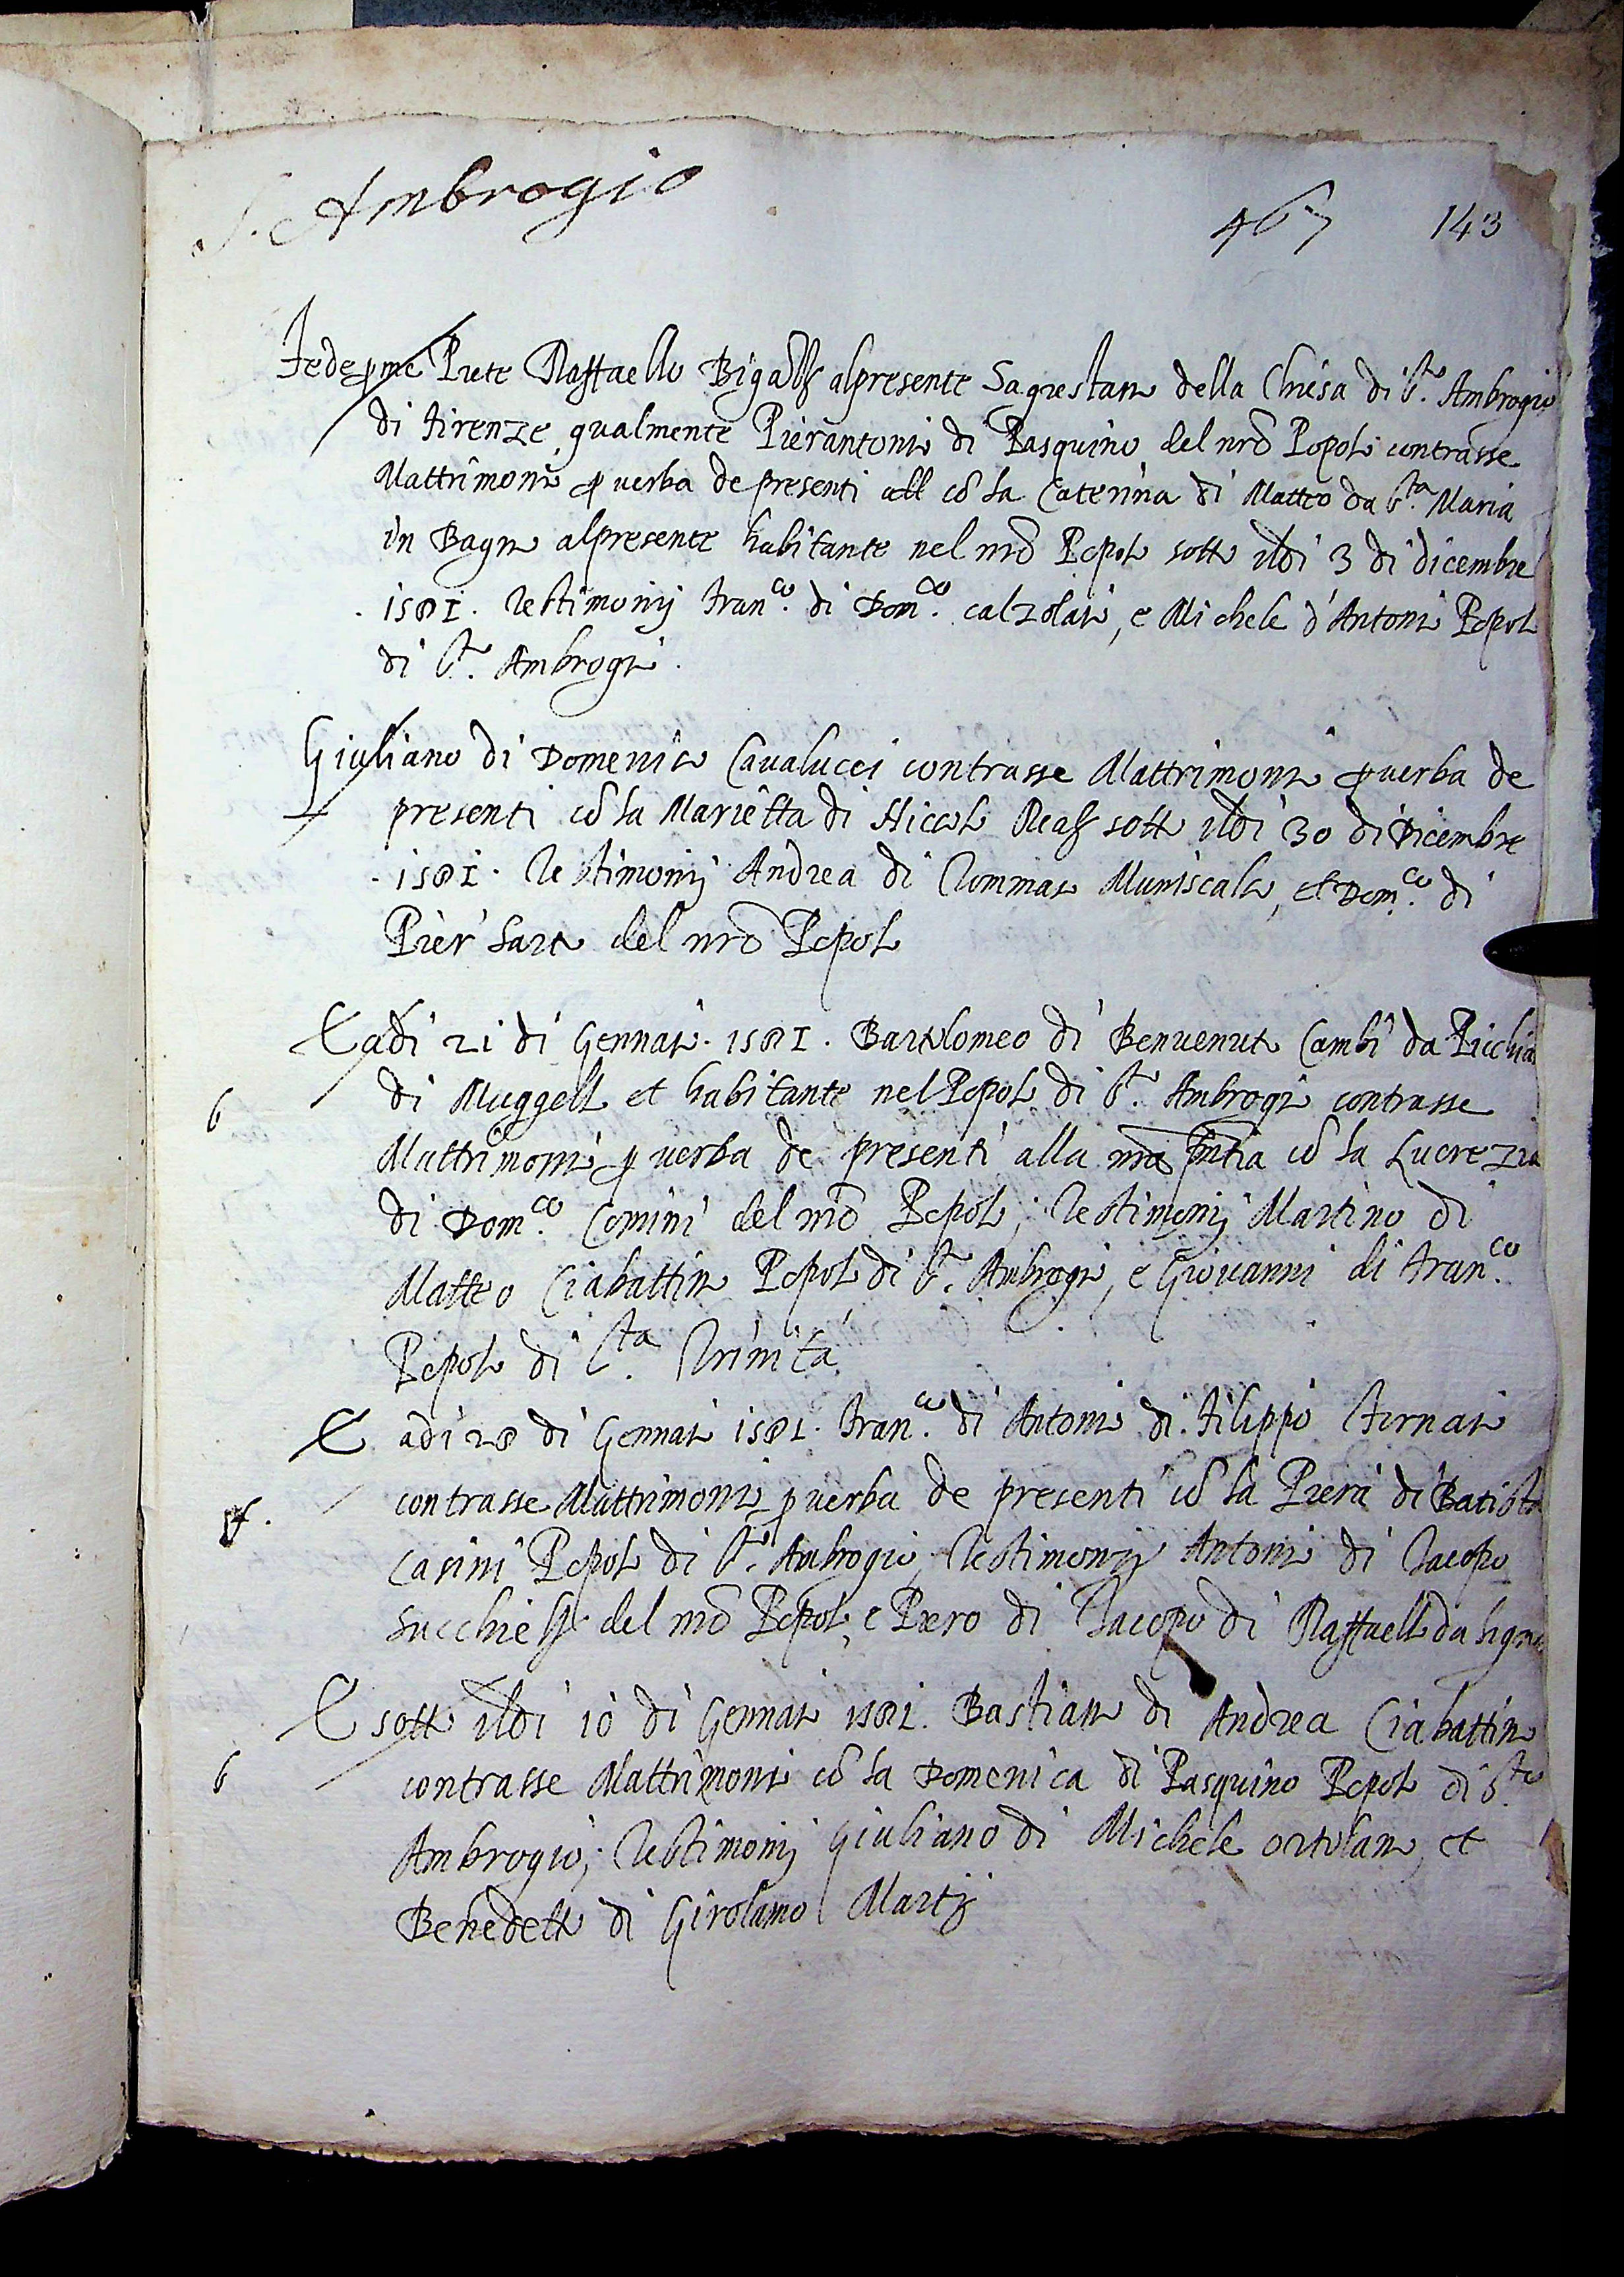 S. Ambrogio
467 143
Fede p me Prete Raffaello Bigalli alpresente Sagrestano della Chiesa di Sto. Ambrogio
di Firenze, qualmente Pierantonio di Pasquino del nrō Popolo contrasse
Mattrimonio p verba de presenti cō la Caterina di Matteo da Sta. Maria
in Bagno alpresente habitante nel nrō Popolo sotto ildi 3 di dicembre
.1581. Testimonij Franco. di Domco. calzolaio, e Michele d'Antonio Popolo
di Sto. Ambrogio.
Giuliano di Domenico Cavalucci contrasse Mattrimonio p verba de
presenti cō la Marietta di Niccolo sotto ildi 30 di Dicembre
.1581. Testimonij Andrea di Tommaso Maniscalco, et Domco. di
Piero Sarto del nrō Popolo
E adi 21 di Gennaio. 1581. Bartolomeo di Benvenuto Cambi da
6 di Muggello et habitante nel Popolo di Sto. Ambrogio contrasse
Mattrimonio p verba de presenti alla nrā pñtia cō la Lucrezia
di Domco. Comini del nrō Popolo; Testimonij Martino di
Matteo Ciabattino Popolo di Sto. Ambrogio, e Giovanni di Franco.
Popolo di Sta. Trinita
E adi 28 di Gennaio 1581. Franco. di Antonio di Filippo Fornaio
contrasse Mattrimonio p verba de presenti cō la Piera di Batista
Casini Popolo di Sto. Ambrogio, Testimonij Antonio di Iacopo
del nrō Popolo, e Piero di Iacopo di Raffaello da Signa
E sotto ildi 10 di Gennaio 1581. Bastiano di Andrea Ciabattino
6 contrasse Mattrimonio cō la Domenica di Pasquino Popolo di Sto.
Ambrogio; Testimonij Giuliano di Michele ortolano, et
Benedetto di Girolamo Martij